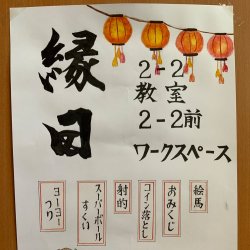 縁日
2-2
教室
2-2前
ワークスペース
絵馬
おみくじ
コイン落とし
射的
スーパーボール
すくい
ヨーヨー
つり